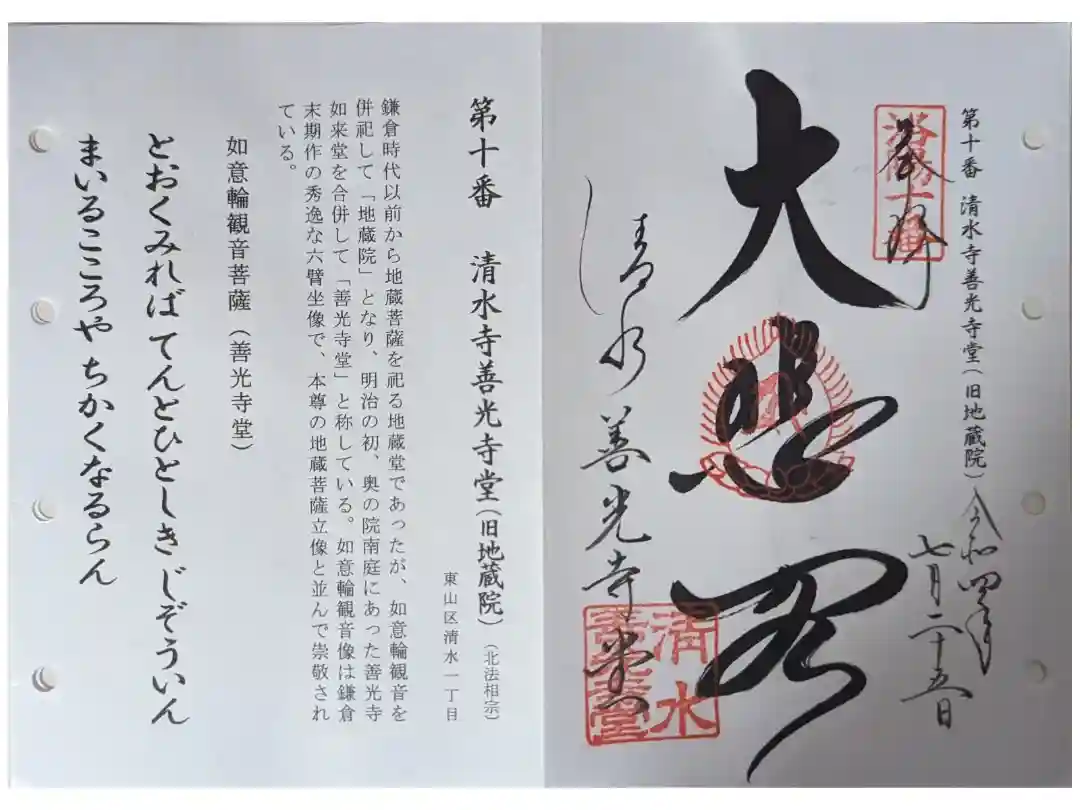 第十番 清水寺善光寺堂(旧地蔵院)
令和四年
七月二十五日
奉拝
洛陽十番
大悲閣
清水善光寺堂
清水
善光寺堂
第十番 清水寺善光寺堂(旧地蔵院)(北法相宗)
東山区清水一丁目
鎌倉時代以前から地蔵菩薩を祀る地蔵堂であったが、如意輪観音を
併祀して「地蔵院」となり、明治の初、奥の院南庭にあった善光寺
如来堂を合併して「善光寺堂」と称している。如意輪観音像は鎌倉
末期作の秀逸な六臂坐像で、本尊の地蔵菩薩立像と並んで崇敬され
ている。
如意輪観音菩薩(善光寺堂)
とおくみれば てんとひとしき じぞういん
まいるこころや ちかくなるらん